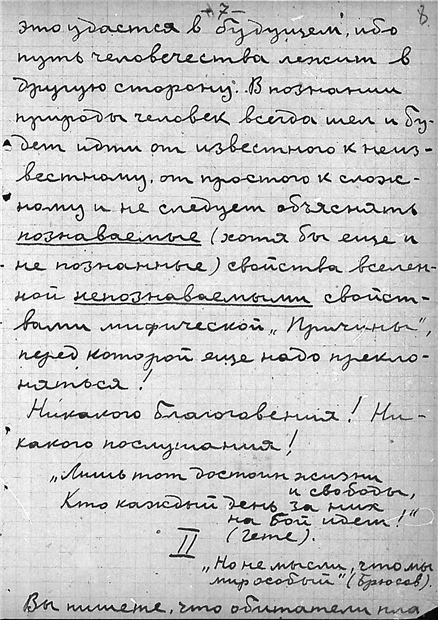 -7-
8
это удастся в будущем, ибо
путь человечества лежит в
другую сторону. В познании
природы человек всегда шел и бу-
дет идти от известного к неиз-
вестному, от простого к слож-
ному и не следует объяснять
познаваемые (хотя бы еще и
не познанные) свойства вселен-
ной непознаваемыми свойст-
вами мифической „Причины",
перед которой еще надо прекло-
няться!
Никакого благоговения! Ни-
какого послушания!
„Лишь тот достоин жизни
и свободы,
Кто каждый день за них
на бой идет!"
(Гете).
II
„Но не мысли, что мы
мир особый" (Брюсов).
Вы пишете, что обитатели пла